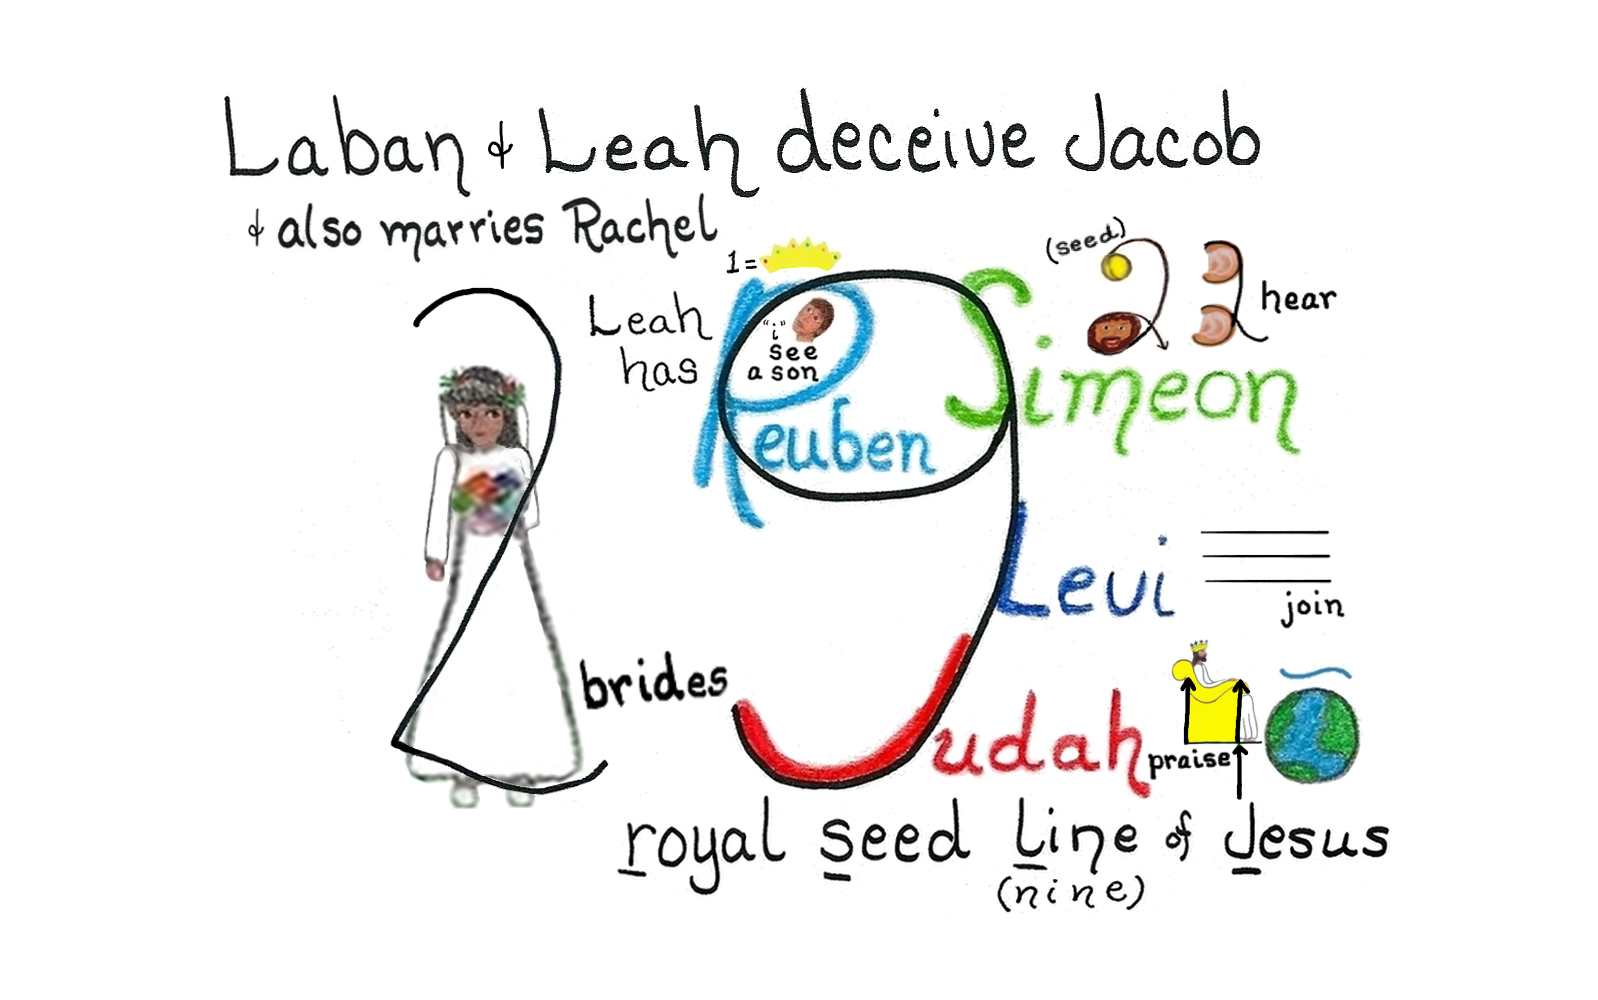 Laban & Leah deceive Jacob
& also marries Rachel
1=
(seed)
Leah
has
"i"
see
a son
Reuben
Simeon
hear
Levi
join
brides
Judah
praise
royal seed Line of Jesus
(nine)